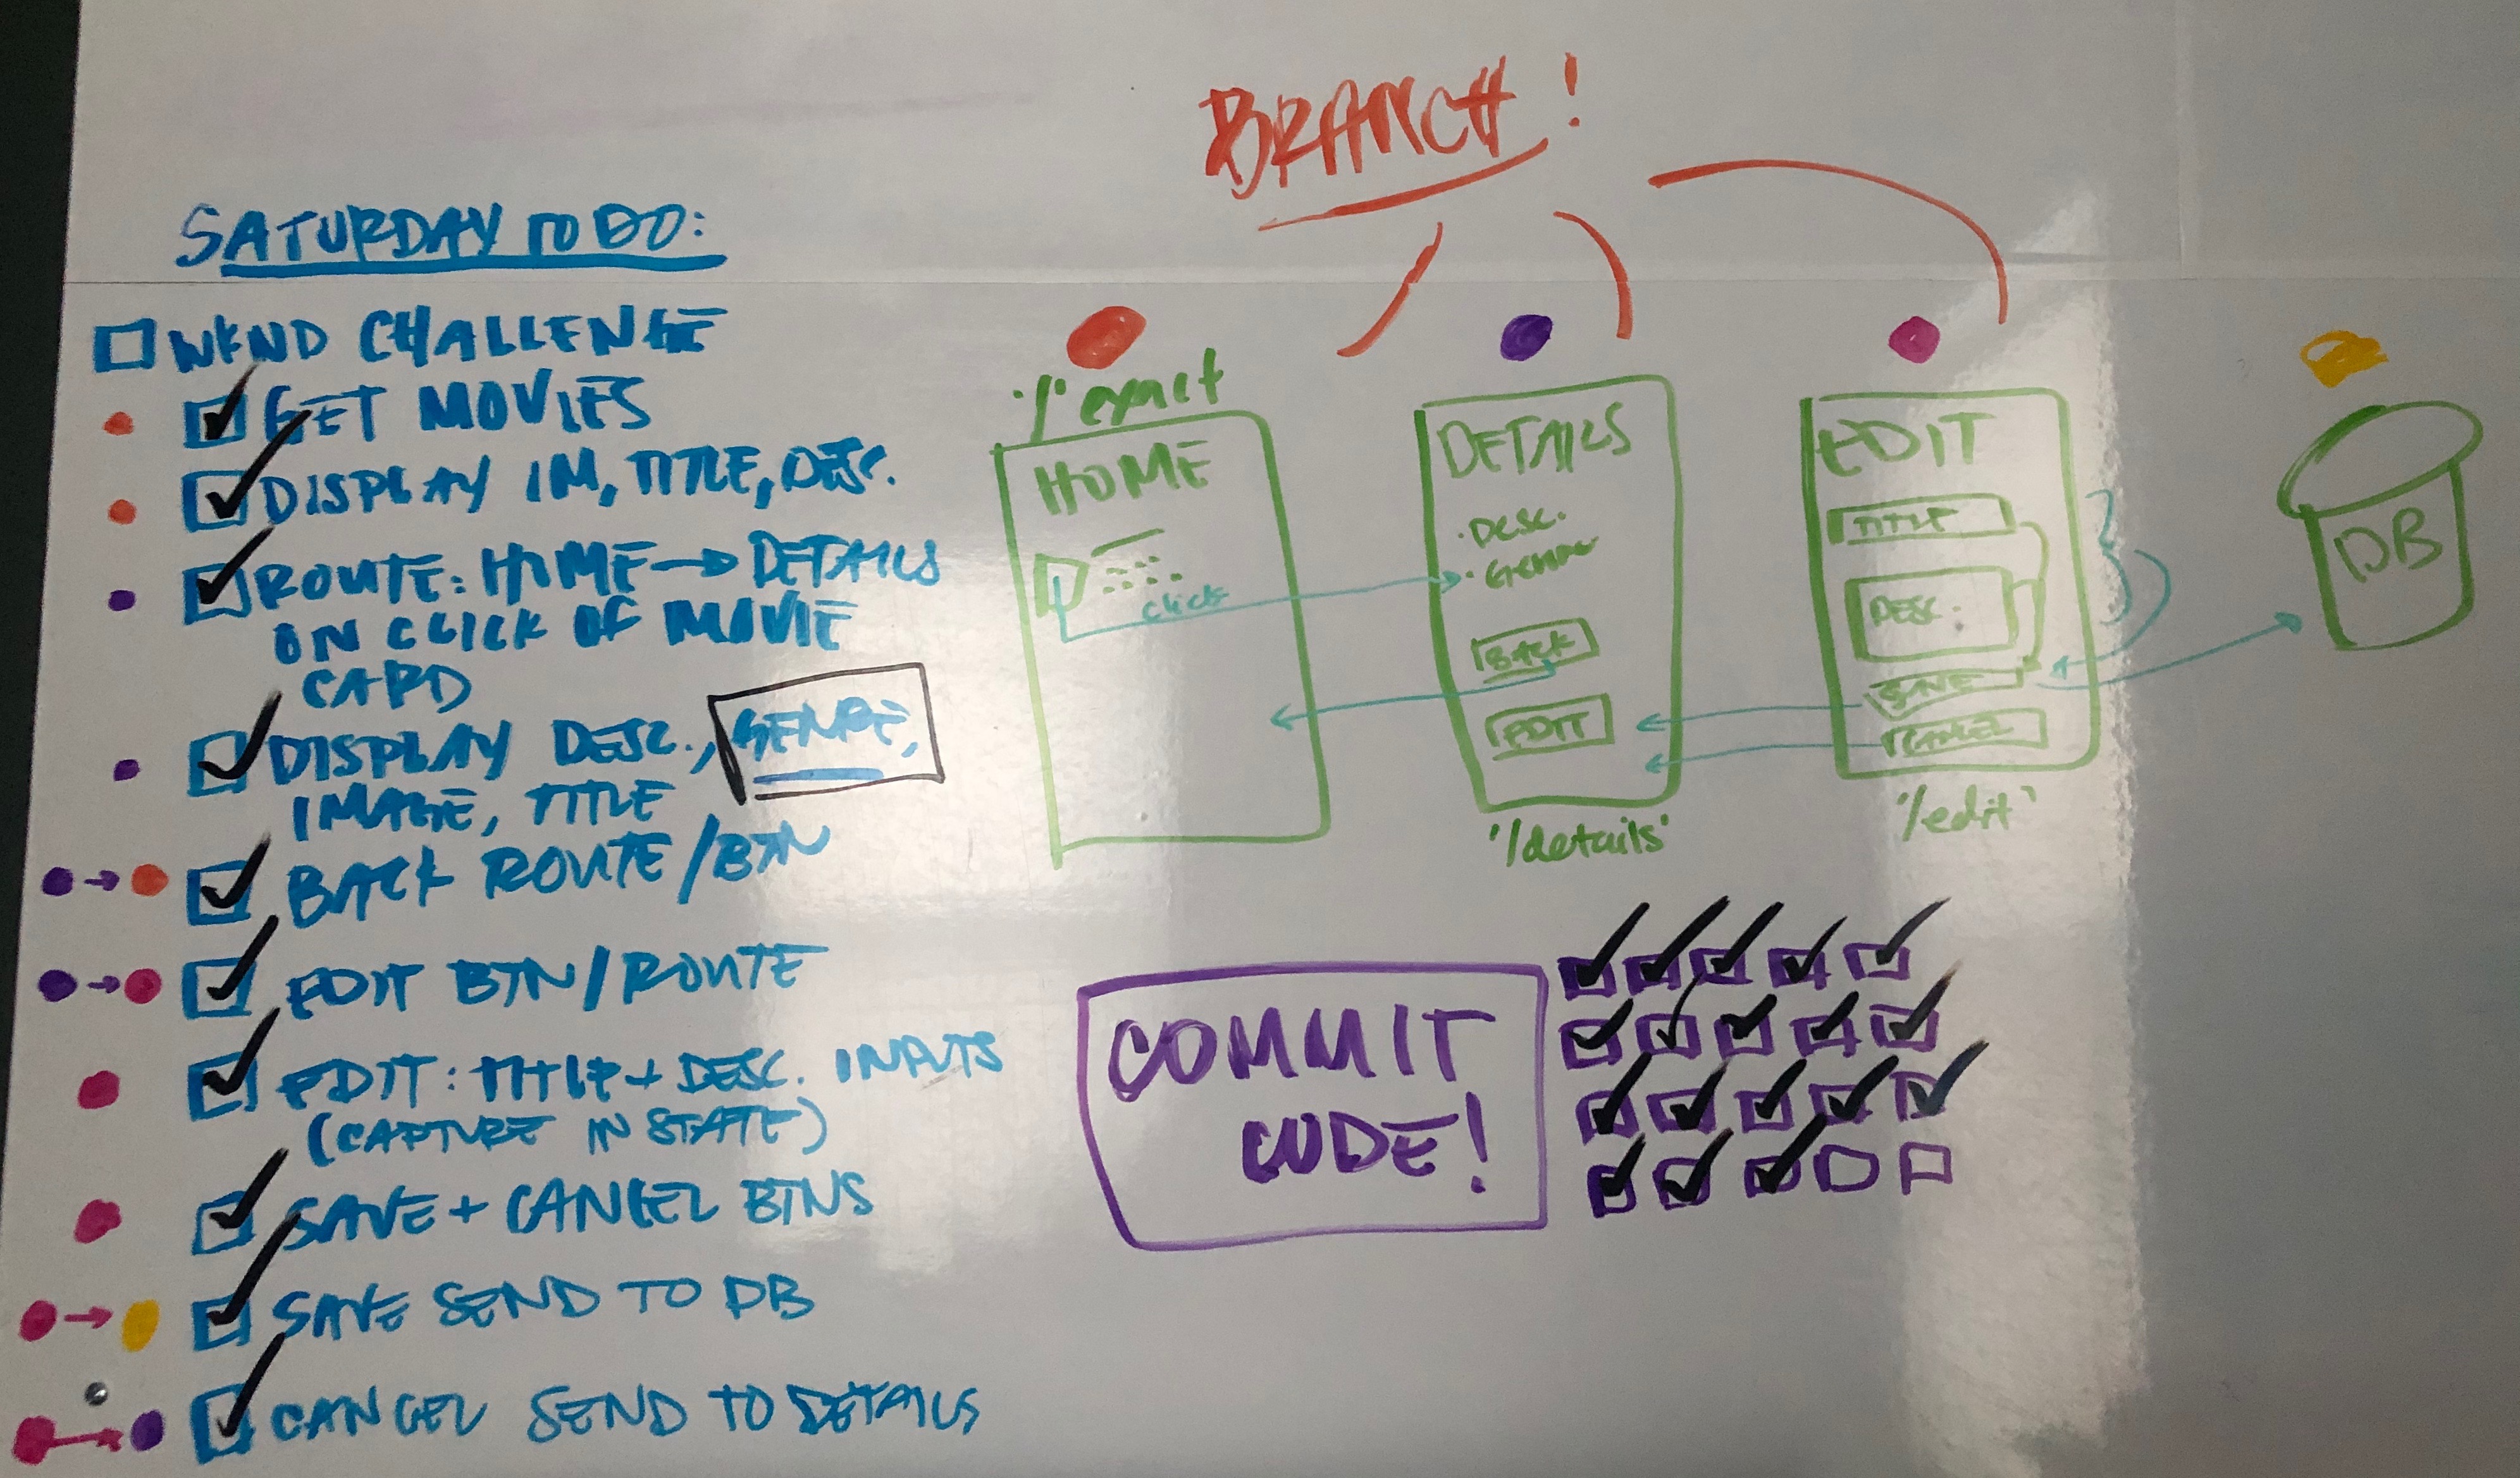 BRANCH!
SATURDAY TO DO:
WKND CHALLENGE
GET MOVIES
DISPLAY IM, TITLE, DESC.
ROUTE: HOME → DETAILS
ON CLICK OF MOVIE
CARD
DISPLAY DESC., GENRE,
IMAGE, TITLE
BACK ROUTE/BTN
EDIT BTN/ROUTE
EDIT: TITLE + DESC. INPUTS
(CAPTURE IN STATE)
SAVE + CANCEL BTNS
SAVE SEND TO DB
CANCEL SEND TO DETAILS
'/' exact
HOME
click
DETAILS
· DESC.
· GENRE
BACK
EDIT
'/details'
EDIT
TITLE
DESC.
SAVE
CANCEL
'/edit'
DB
COMMIT
CODE!